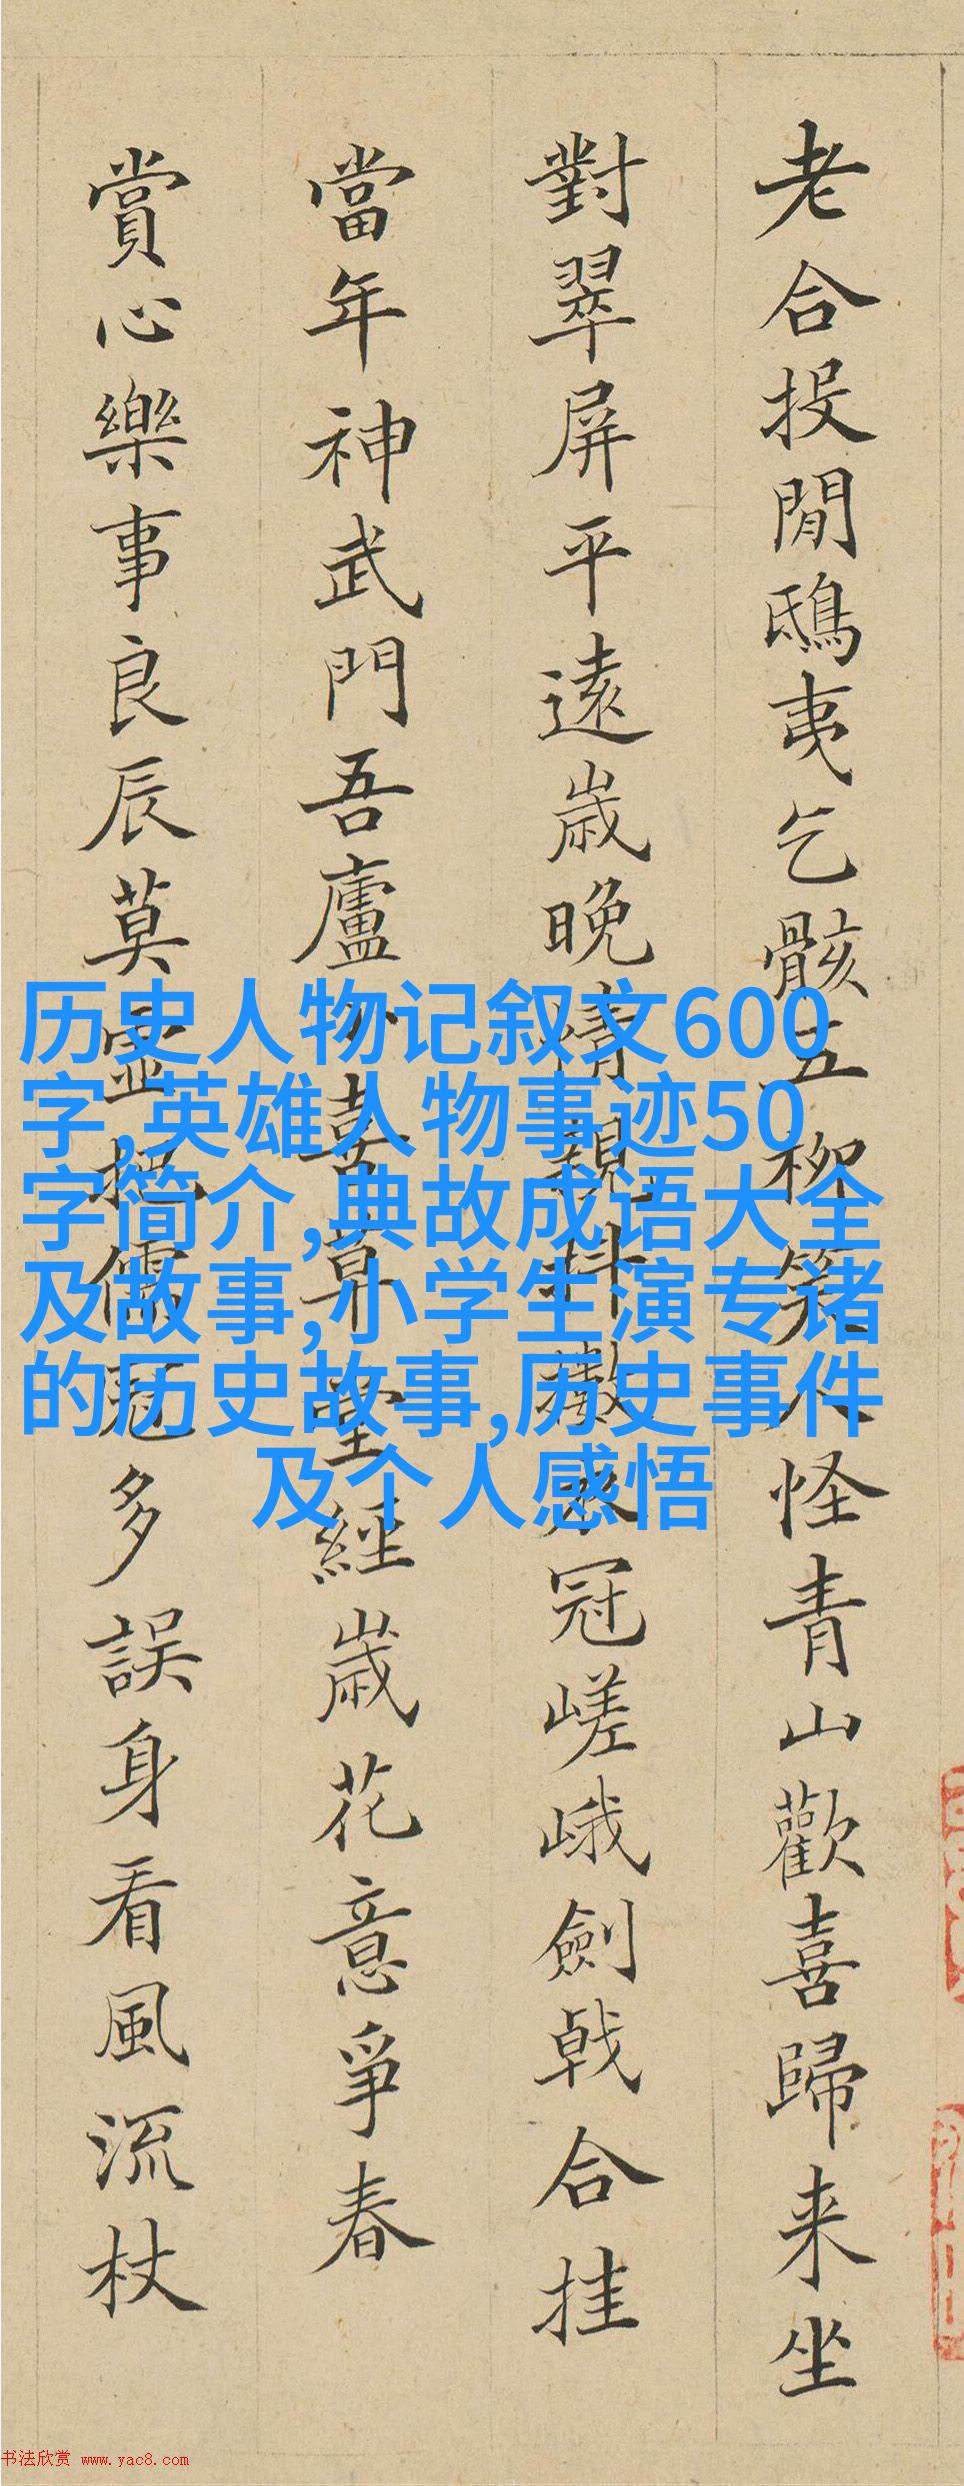 老合投閒鴟夷乞骸五柳笑人怪青山歡喜歸来坐
對翠屏平遠歲晚情親抖擻衣冠嵯峨劍戟合挂
當年神武門吾廬喜草堂經歲花意爭春
賞心樂事良辰莫把儒冠多誤身看風流杖
历史人物记叙文600
字,英雄人物事迹50
字简介,典故成语大全
及故事,小学生演专诸
的历史故事,历史事件
及个人感悟
书法欣赏 www.yac8.com